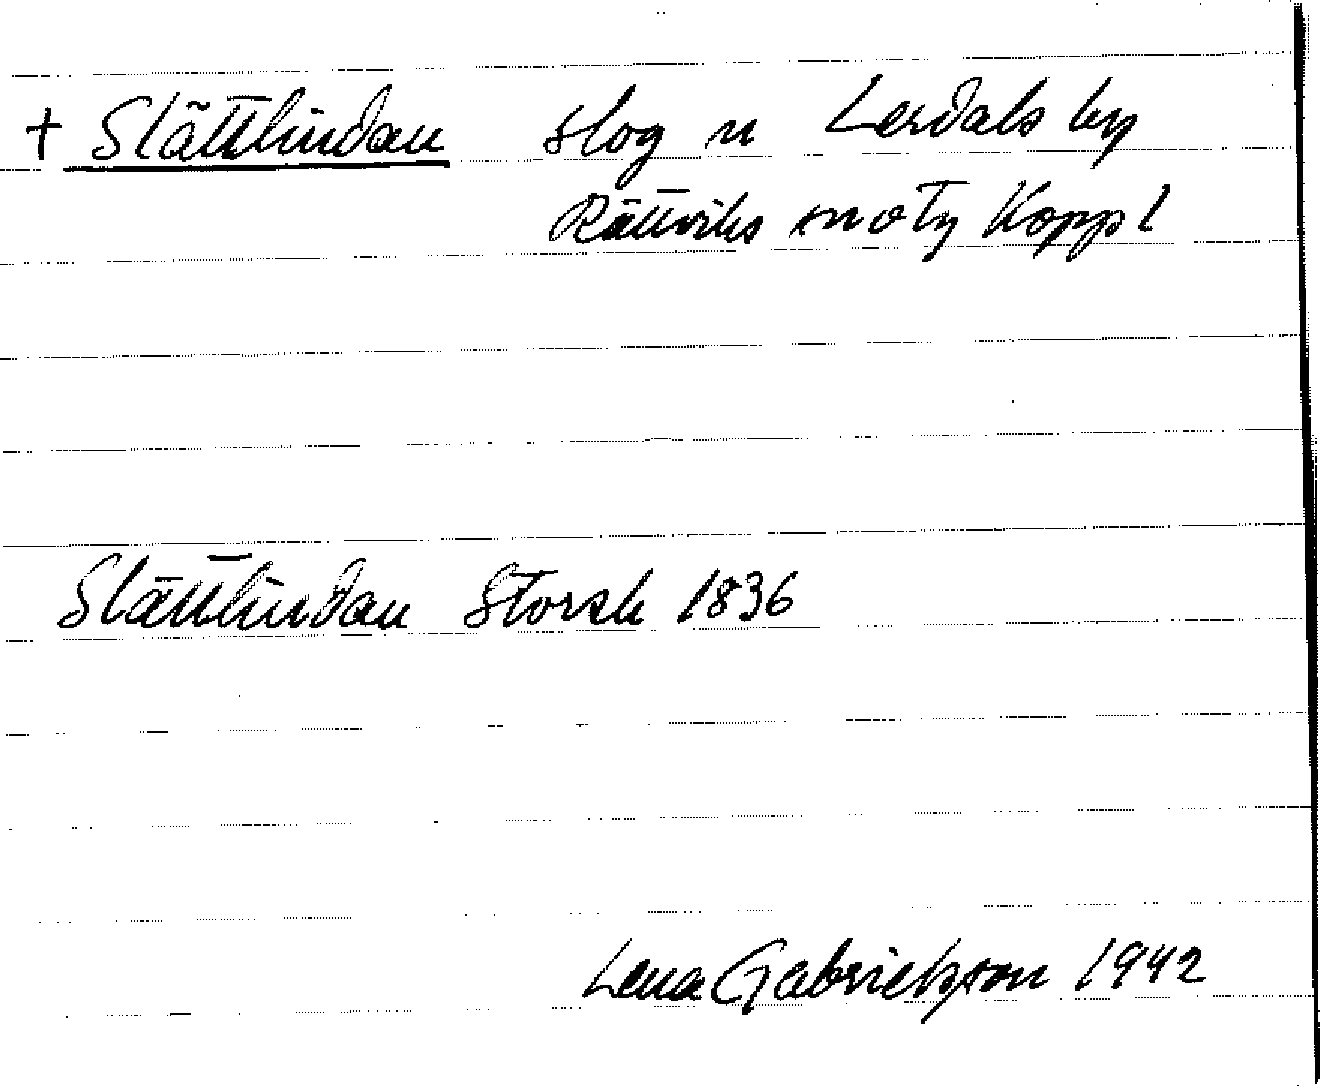 + Slättlindan slog n Lerdals by
Rättviks snoty Koppl
Slättlindan Storsk 1836
Lena Gabrielsson 1942